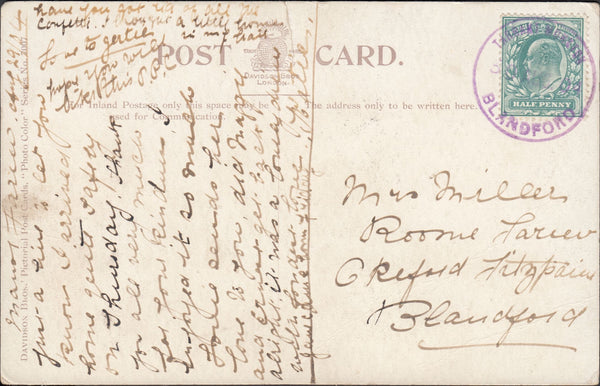 have you got rid of all the
Confetti. I brought a little home
in my hat
So as to gertie
hope you will
like this P.P.C.
POST CARD.
DAVIDSON BROS
LONDON
For Inland Postage only this space may be used for Communication.
The address only to be written here.
HALF PENNY
BLANDFORD
DAVIDSON BROS.' Pictorial Post Cards. "Photo Color" Series No.
Manor Farm, Aug 29/04
Just a line to let you
know I arrived
home quite safely
on Thursday. Thank
you all very much
for your kindness I
enjoyed it so much
love to you, did Mary
and get back
alright, it was a
with fondest love
Mrs Miller
Roome Farm
Okeford Fitzpaine
Blandford